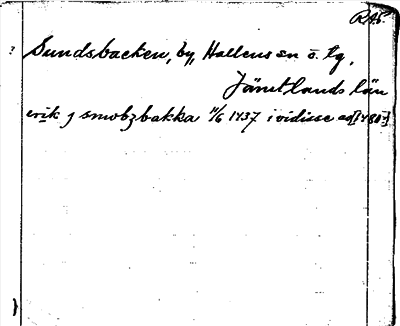 RAP.
? Sundsbacken, by, Hallens sn o. tg,
Jämtlands län
erik j smobzbakka 11/6 1437 i vidisse av [1480-]